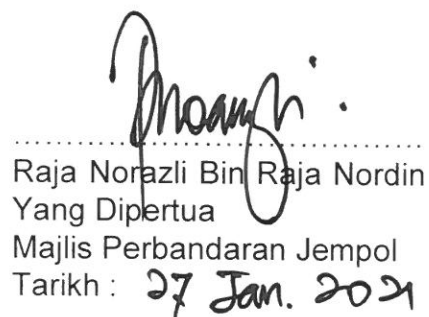 ......................................................
Raja Norazli Bin Raja Nordin
Yang Dipertua
Majlis Perbandaran Jempol
Tarikh : 27 Jan. 2021